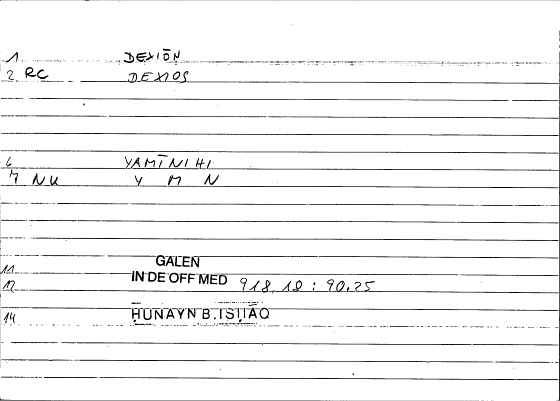 1 DEXIŌN
2 RC DEXIOS
6 YAMĪNIHI
7 NK Y M N
11 GALEN
12 IN DE OFF MED 918.18 : 90.25
14 ḤUNAYN B. ISḤĀQ